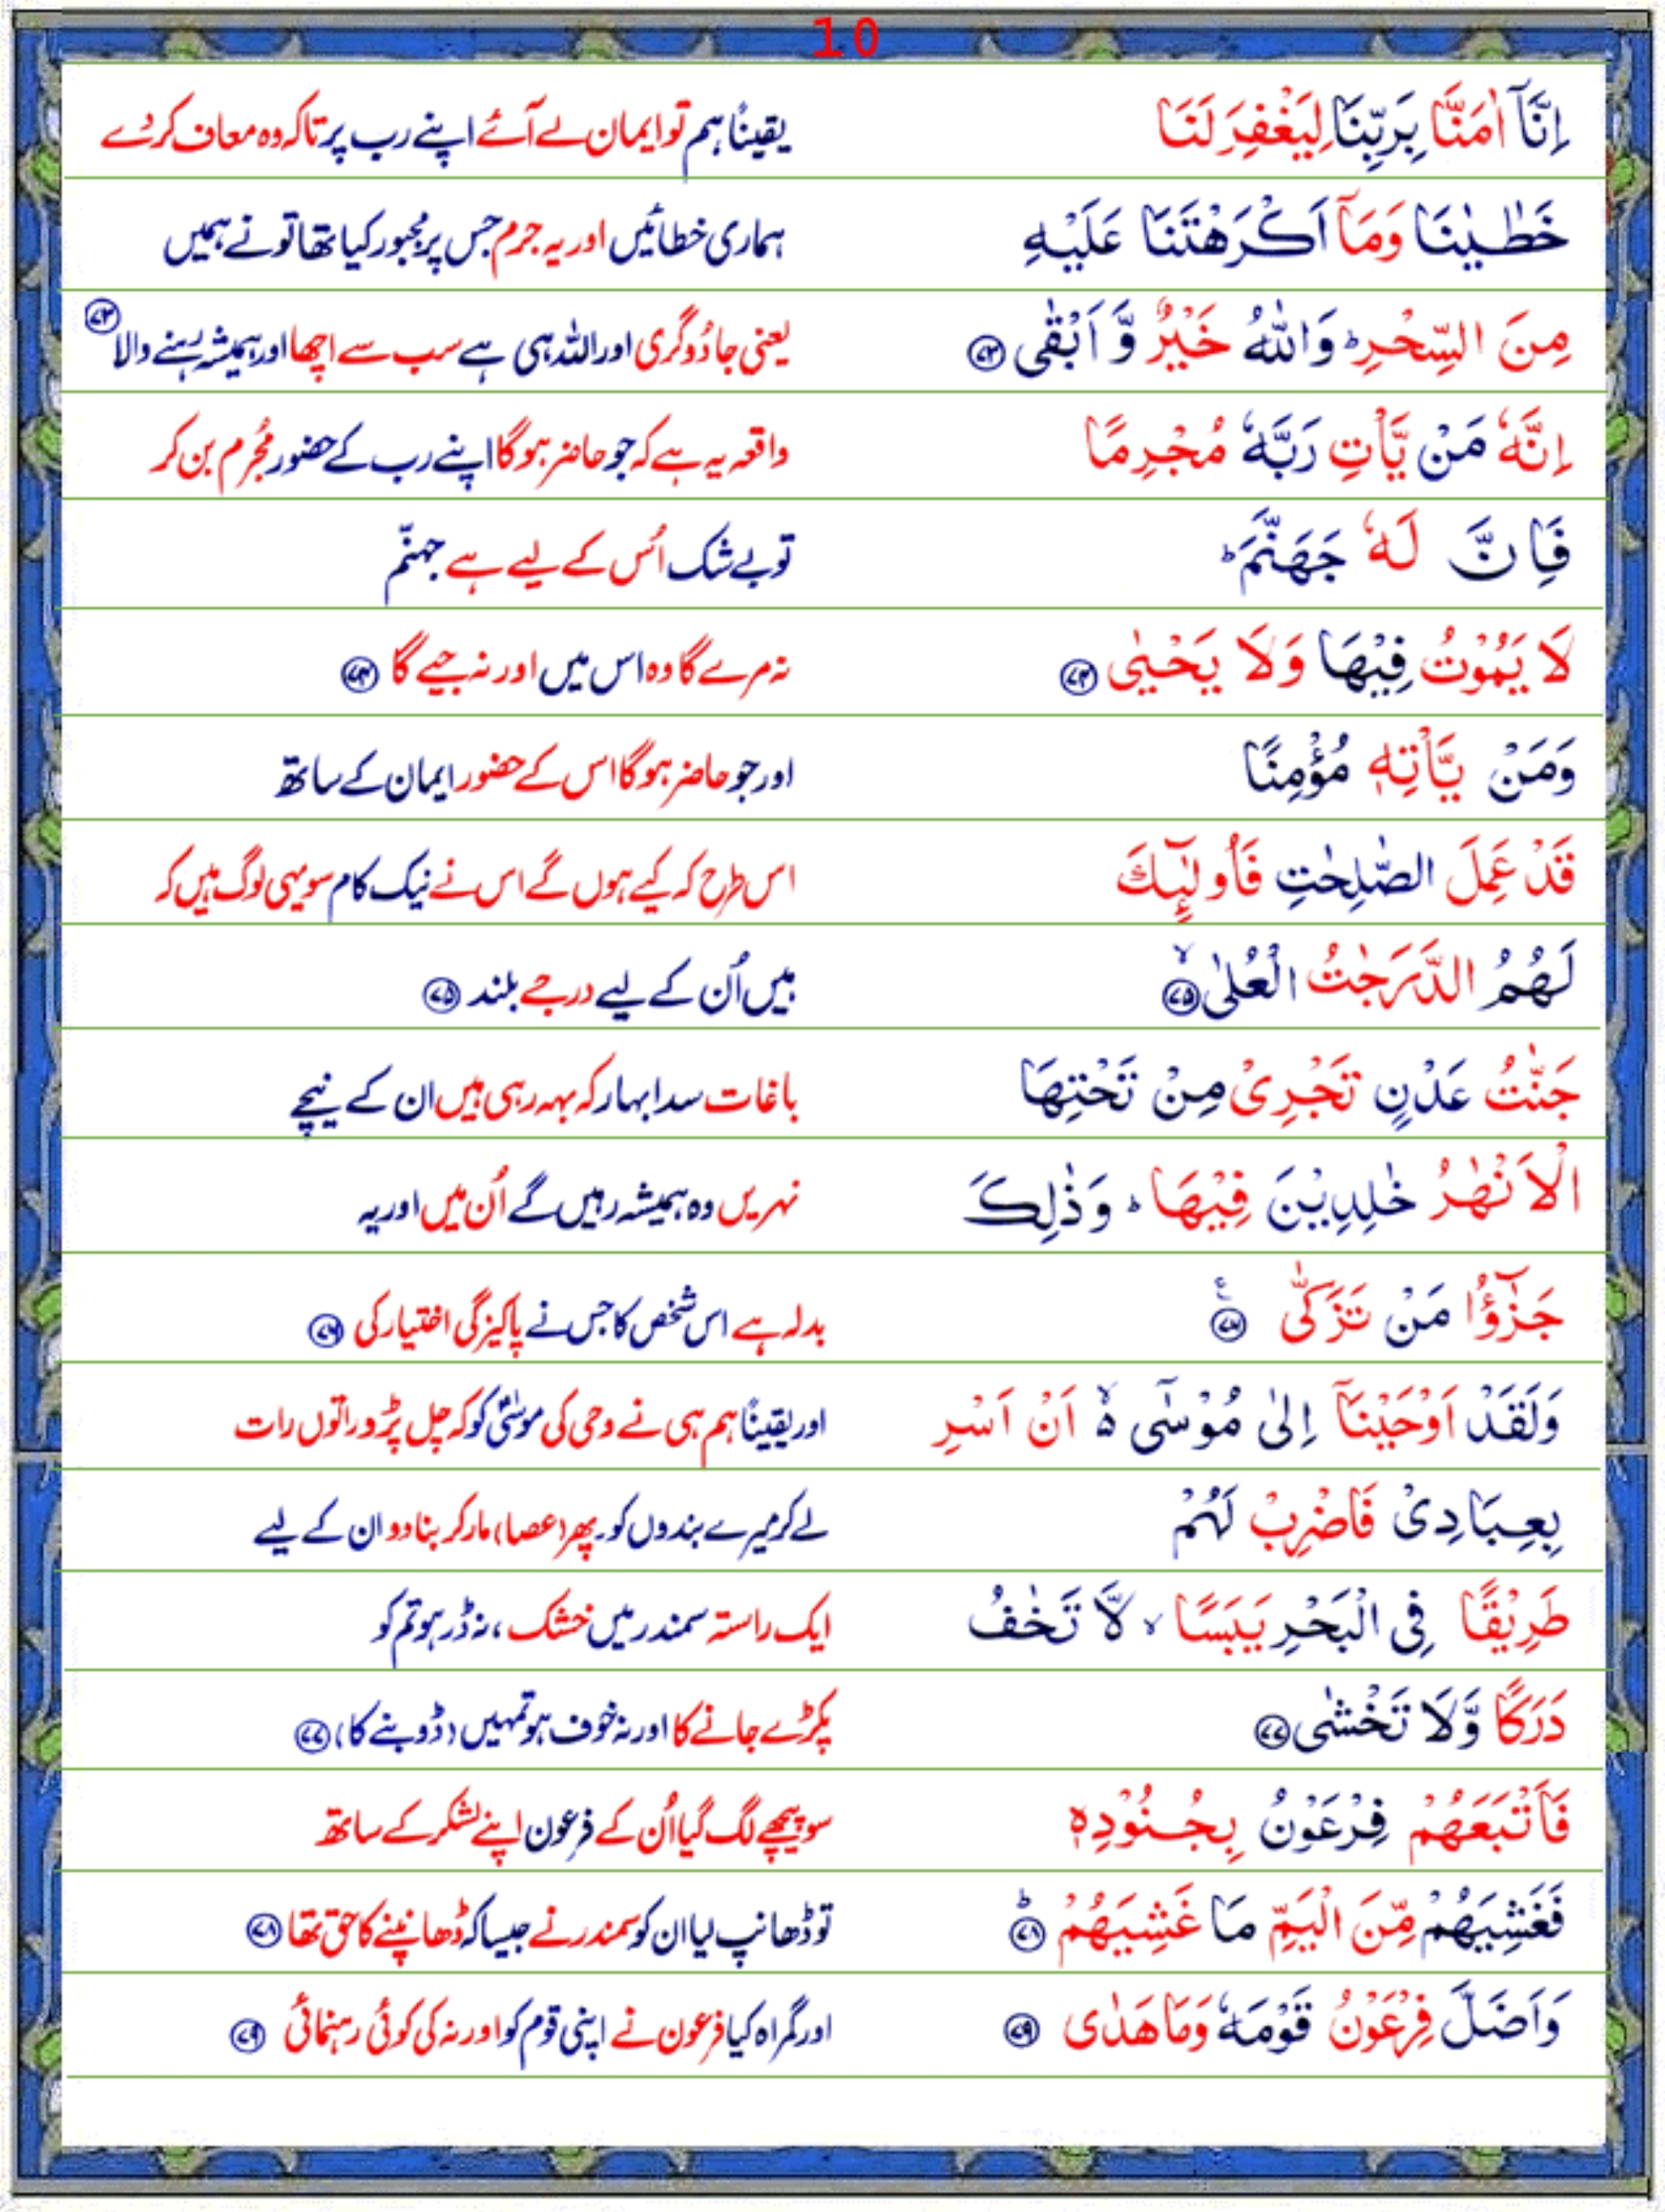 10
اِنَّاۤ اٰمَنَّا بِرَبِّنَا لِيَغْفِرَ لَنَا یقیناً ہم تو ایمان لے آئے اپنے رب پر تاکہ وہ معاف کر دے
خَطٰيٰنَا وَمَاۤ اَكْرَهْتَنَا عَلَيْهِ ہماری خطائیں اور یہ جرم جس پر مجبور کیا تھا تو نے ہمیں
مِنَ السِّحْرِ ؕ وَاللّٰهُ خَيْرٌ وَّ اَبْقٰى ﴿۷۳﴾ یعنی جادُوگری اور اللہ ہی ہے سب سے اچھا اور ہمیشہ رہنے والا ﴿۷۳﴾
اِنَّهٗ مَنْ يَّاْتِ رَبَّهٗ مُجْرِمًا واقعہ یہ ہے کہ جو حاضر ہوگا اپنے رب کے حضور مُجرم بن کر
فَاِنَّ لَهٗ جَهَنَّمَ ؕ تو بے شک اُس کے لیے ہے جہنّم
لَا يَمُوْتُ فِيْهَا وَلَا يَحْيٰى ﴿۷۴﴾ نہ مرے گا وہ اس میں اور نہ جیے گا ﴿۷۴﴾
وَمَنْ يَّاْتِهٖ مُؤْمِنًا اور جو حاضر ہوگا اس کے حضور ایمان کے ساتھ
قَدْ عَمِلَ الصّٰلِحٰتِ فَاُولٰٓئِكَ اس طرح کہ کیے ہوں گے اس نے نیک کام سو یہی لوگ ہیں کہ
لَهُمُ الدَّرَجٰتُ الْعُلٰى ۙ﴿۷۵﴾ ہیں اُن کے لیے درجے بلند ﴿۷۵﴾
جَنّٰتُ عَدْنٍ تَجْرِىْ مِنْ تَحْتِهَا باغات سدا بہار کہ بہہ رہی ہیں ان کے نیچے
الْاَنْهٰرُ خٰلِدِيْنَ فِيْهَا ؕ وَذٰلِكَ نہریں وہ ہمیشہ رہیں گے اُن میں اور یہ
جَزٰٓؤُا مَنْ تَزَكّٰى ﴿۷۶﴾ۧ بدلہ ہے اس شخص کا جس نے پاکیزگی اختیار کی ﴿۷۶﴾
وَلَقَدْ اَوْحَيْنَاۤ اِلٰى مُوْسٰٓى ۙ۬ اَنْ اَسْرِ اور یقیناً ہم ہی نے وحی کی موسٰیؑ کو کہ چل پڑو راتوں رات
بِعِبَادِىْ فَاضْرِبْ لَهُمْ لے کر میرے بندوں کو۔ پھر (عصا) مار کر بنا دو ان کے لیے
طَرِيْقًا فِى الْبَحْرِ يَبَسًا ۙ لَّا تَخٰفُ ایک راستہ سمندر میں خشک، نہ ڈر ہو تم کو
دَرَكًا وَّلَا تَخْشٰى ﴿۷۷﴾ پکڑے جانے کا اور نہ خوف ہو تمہیں (ڈوبنے کا) ﴿۷۷﴾
فَاَتْبَعَهُمْ فِرْعَوْنُ بِجُنُوْدِهٖ سو پیچھے لگ گیا اُن کے فرعون اپنے لشکر کے ساتھ
فَغَشِيَهُمْ مِّنَ الْيَمِّ مَا غَشِيَهُمْ ؕ﴿۷۸﴾ تو ڈھانپ لیا ان کو سمندر نے جیسا کہ ڈھانپنے کا حق تھا ﴿۷۸﴾
وَاَضَلَّ فِرْعَوْنُ قَوْمَهٗ وَمَا هَدٰى ﴿۷۹﴾ اور گمراہ کیا فرعون نے اپنی قوم کو اور نہ کی کوئی رہنمائی ﴿۷۹﴾